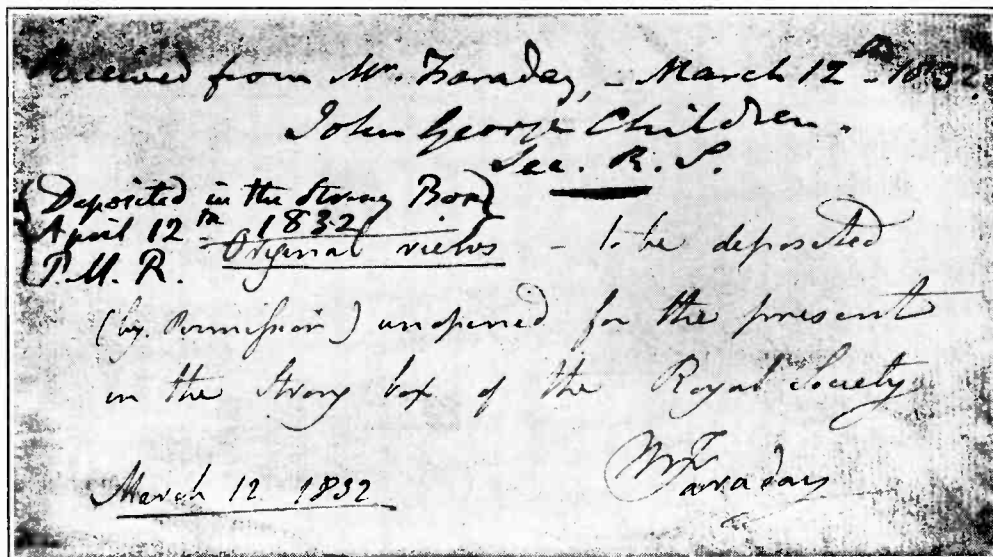 Received from Mr. Faraday, - March 12th - 1832.
John George Children.
Sec. R. S.
Deposited in the Strong Box
April 12th 1832
P. M. R.
Original views - to be deposited
(by Permission) unopened for the present
in the Strong box of the Royal Society
M Faraday
March 12 1832